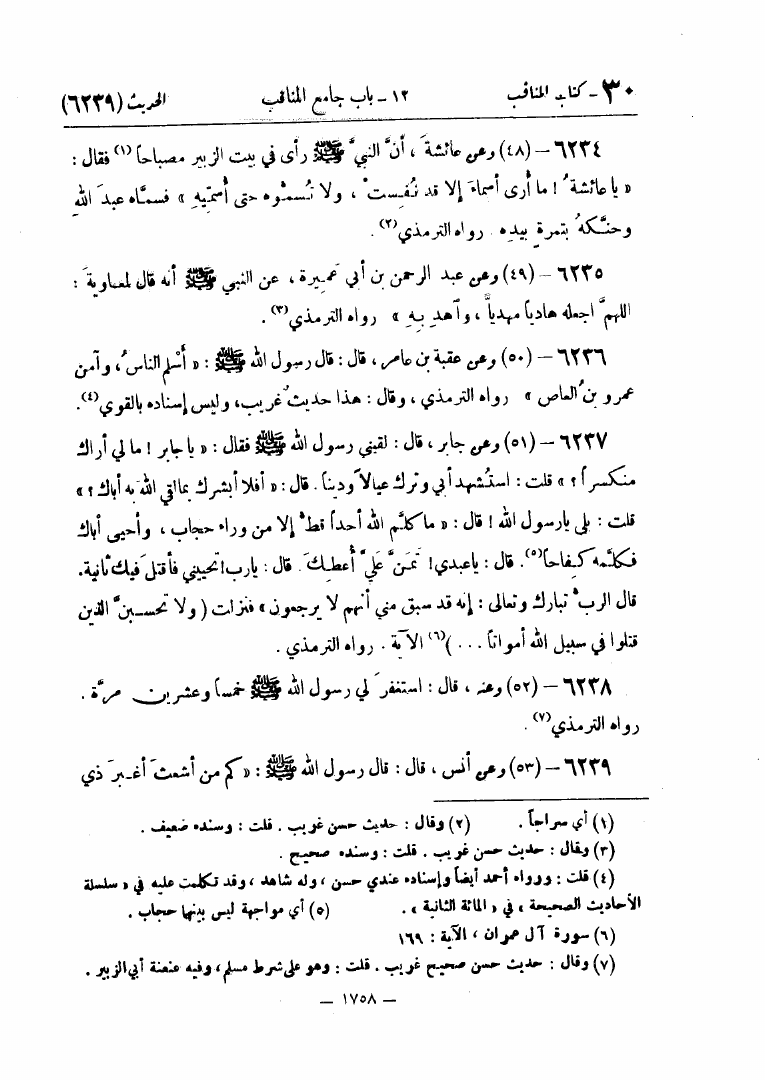 ٣٠ - كتاب المناقب ١٢ - باب جامع المناقب الحديث (٦٢٣٩)
٦٢٣٤ – (٤٨) وعن عائشةَ ، أنَّ النبيَّ ﷺ رأى في بيت الزبير مصباحاً (١) فقال :
« يا عائشةُ ! ما أُرى أسماءَ إلا قد نُفِستْ ، ولا تُسمُّوه حتى أُسمّيِهِ » فسمَّاه عبدَ اللهِ
وحنَّكهُ بتمرةٍ بيدِه . رواه الترمذي(٢) .
٦٢٣٥ – (٤٩) وعن عبد الرحمن بن أبي عَمِيرة ، عن النبي ﷺ أنه قال لمعاويةَ :
اللهمَّ اجعله هادياً مهدياًّ ، وآهدِ بِـهِ » رواه الترمذي(٣) .
٦٢٣٦ – (٥٠) وعن عقبة بن عامر ، قال : قال رسول الله ﷺ : « أسْلم الناسُ، وآمن
عمرو بنُ العاص » رواه الترمذي ، وقال : هذا حديثٌ غريب، وليس إسناده بالقوي(٤).
٦٢٣٧ – (٥١) وعن جابر ، قال : لقيني رسول الله ﷺ فقال : « يا جابر ! ما لي أراك
منكسراً ؟ » قلت : استُشهد أبي وترك عيالاً ودِيناً . قال : « أفلا أبشرك بمالقي اللهَ به أباك ؟ »
قلت : بلى يارسول الله ! قال : « ما كلَّم الله أحداً قطُّ إلا من وراء حجاب ، وأحيى أباك
فكلَّمه كِفاحاً(٥). قال : ياعبدي! تمَنَّ عَليَّ أعطِكَ . قال : يارب! تحييني فأقتلَ فيك ثانية.
قال الربُّ تبارك وتعالى : إنه قد سبق مني أنهم لا يرجعون » فنزلت ( ولا تحسبنَّ الذين
قتلوا في سبيل الله أمواتاً . . . )(٦) الآية . رواه الترمذي .
٦٢٣٨ – (٥٢) وعنه ، قال : استغفرَ لي رسول الله ﷺ خمساً وعشرين مرَّة .
رواه الترمذي(٧) .
٦٢٣٩ – (٥٣) وعن أنس ، قال : قال رسول الله ﷺ : « كم من أشعثَ أغـبرَ ذي
(١) أي سراجاً . (٢) وقال : حديث حسن غريب . قلت : وسنده ضعيف .
(٣) وقال : حديث حسن غريب . قلت : وسنده صحيح .
(٤) قلت : ورواه أحمد أيضاً وإسناده عندي حسن ، وله شاهد ، وقد تكلمت عليه في « سلسلة
الأحاديث الصحيحة » في « المائة الثانية » . (٥) أي مواجهة ليس بينها حجاب .
(٦) سورة آل عمران ، الآية : ١٦٩
(٧) وقال : حديث حسن صحيح غريب . قلت : وهو على شرط مسلم، وفيه عنعنة أبي الزبير .
– ١٧٥٨ –